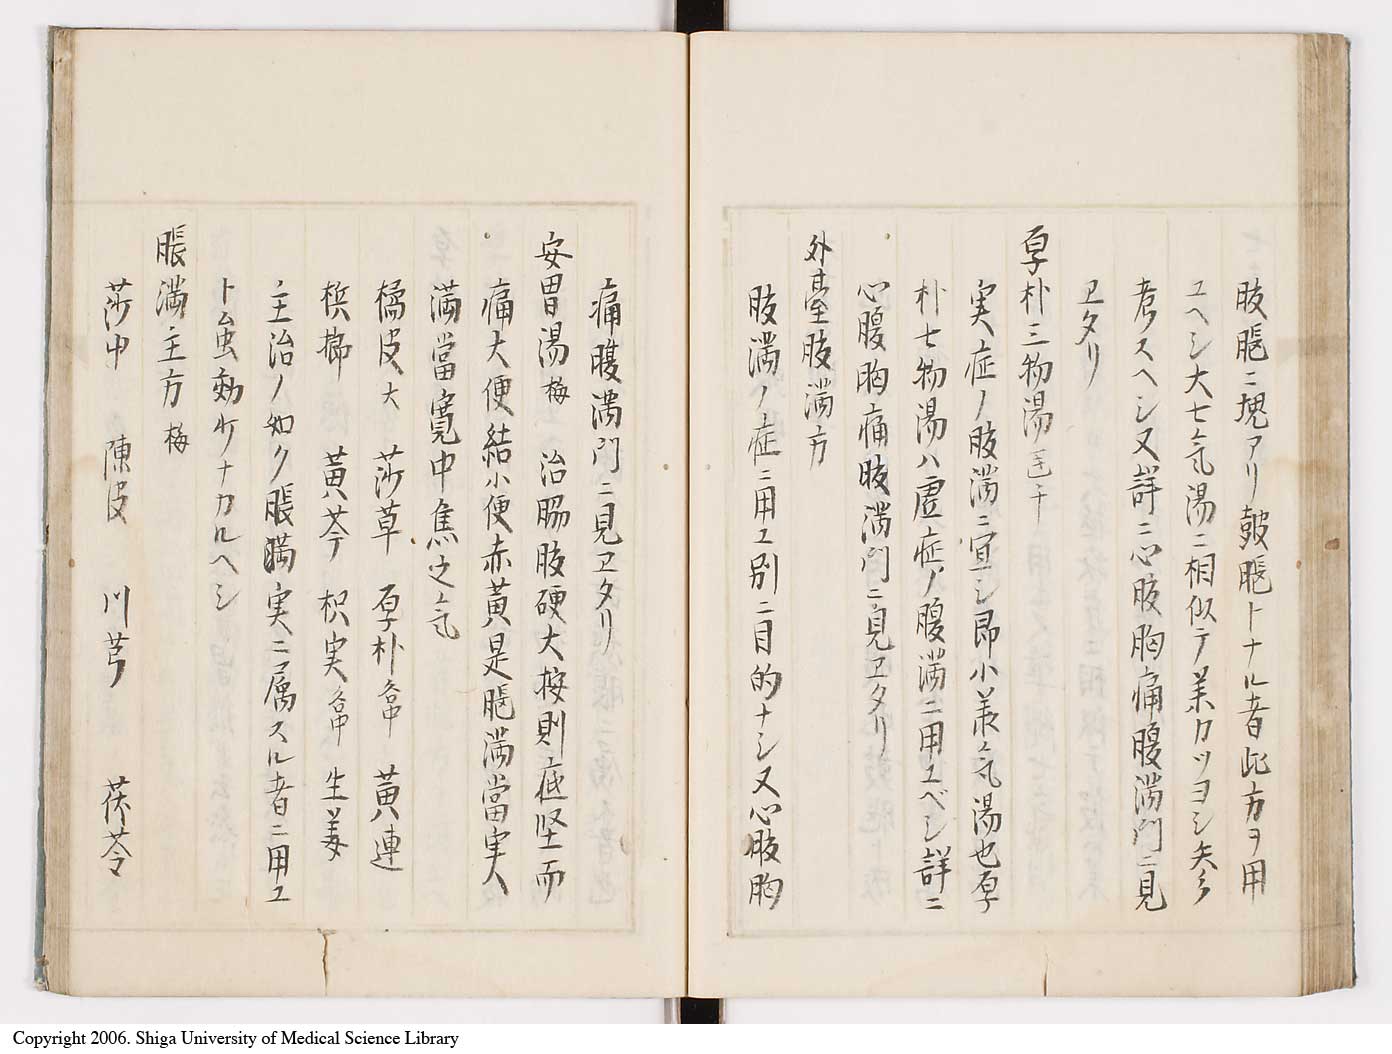 肢脹ニ塊アリ鼓脹トナル者此方ヲ用
ユヘシ大七気湯ニ相似テ業カツヨシ矢ラ
考スヘシ又詳ニ心肢胸痛腹満門ニ見
ヱタリ
厚朴三物湯
実症ノ肢満ニ宣シ即小義気湯也厚
朴七物湯ハ虚症ノ腹満ニ用ユベシ詳ニ
心腹胸痛肢満門ニ見ヱタリ
外臺肢満方
肢満ノ症ニ用ユ別ニ目的ナシ又心肢胸
痛腹満門ニ見ヱタリ
安胃湯梅 治腸肢硬大按則 堅而
痛大便結小便赤黄是脹満當実
満當寛中焦之気
橘皮大 莎草 厚朴各中 黄連
梹榔 黄芩 枳実各中 生姜
主治ノ如ク脹満実ニ属スル者ニ用ユ
ト虫効少ナカルヘシ
脹満主方梅
莎中 陳皮 川芎 茯苓
Copyright 2006. Shiga University of Medical Science Library